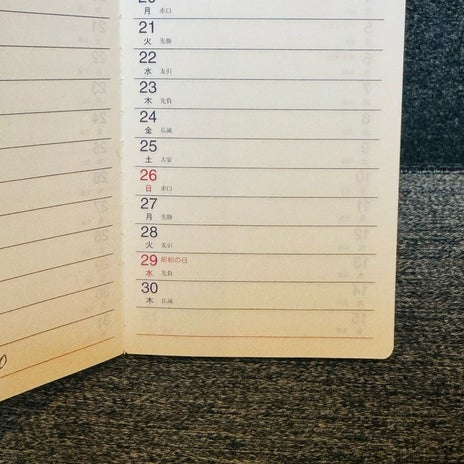 20
月 赤口
21
火 先勝
22
水 友引
23
木 先負
24
金 仏滅
25
土 大安
26
日 赤口
27
月 先勝
28
火 友引
29 昭和の日
水 先負
30
木 仏滅